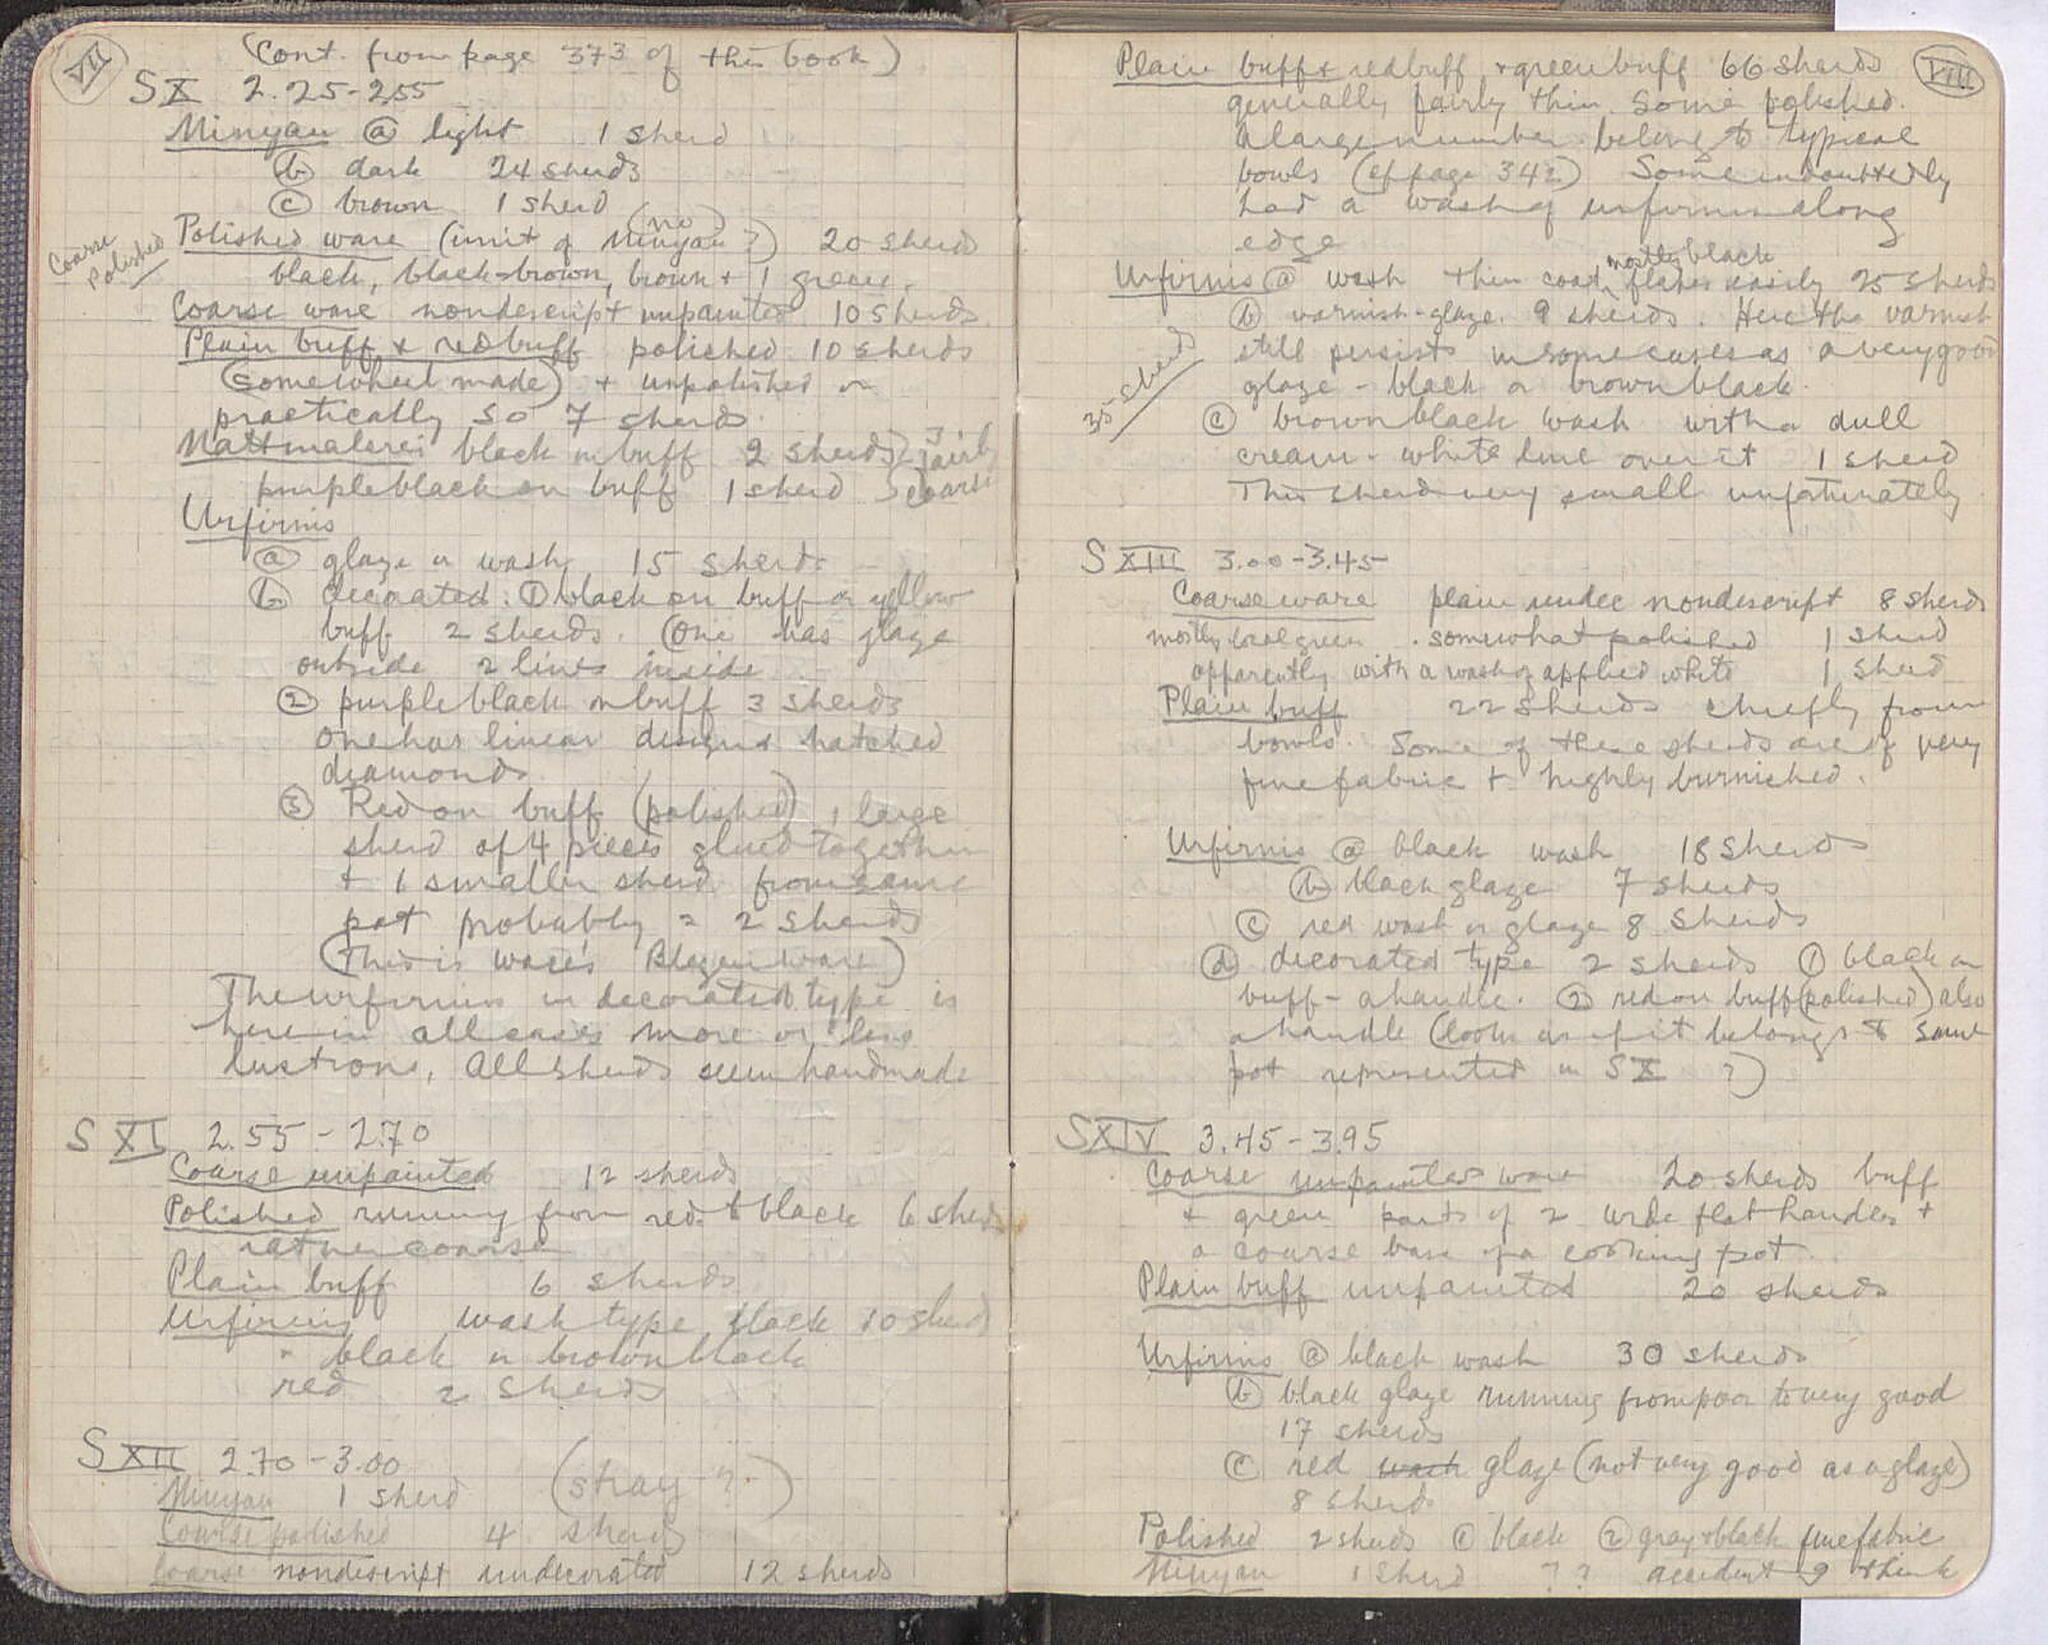 VII
(Cont. from page 373 of this book)
S X 2.25-2.55
Minyan (a) light 1 sherd
(b) dark 24 sherds
(c) brown 1 sherd
(no)
Polished ware (imit of Minyan?) 20 sherds
Coarse
Polished
black, black-brown, brown + 1 green.
Coarse ware nondescript unpainted 10 sherds
Plain buff & redbuff polished 10 sherds
(some wheel made) + unpolished or
practically so 7 sherds.
Mattmalerei black on buff 2 sherds } 3 fairly
purple black on buff 1 sherd } coarse
Urfirnis
(a) glaze or wash 15 sherds
(b) decorated. (1) black on buff or yellow
buff 2 sherds. (One has glaze
outside 2 lines inside
(2) purple black on buff 3 sherds
one has linear designs hatched
diamonds
(3) Red on buff (polished) 1 large
sherd of 4 pieces glued together
+ 1 smaller sherd from same
pot probably = 2 sherds
(This is Wace's Blegen ware)
The urfirnis in decorated type is
here in all cases more or less
lustrous, all sherds seem handmade
S XI 2.55-2.70
Coarse unpainted 12 sherds
Polished running from red to black 6 sherds
rather coarse
Plain buff 6 sherds
Urfirnis wash type black 10 sherds
" black or brown black
red 2 sherds
S XII 2.70-3.00
Minyan 1 sherd (stray?)
Coarse polished 4 sherds
Coarse nondescript undecorated 12 sherds
VIII
Plain buff + redbuff + greenbuff 66 sherds
generally fairly thin. Some polished.
A large number belong to typical
bowls (cf page 342) Some undoubtedly
had a wash of urfirnis along
edge
mostly black
Urfirnis (a) wash thin coat, flakes easily 25 sherds
(b) varnish-glaze. 9 sherds. Here the varnish
still persists in some cases as a very good
glaze - black or brownblack.
35 sherds
(c) brownblack wash with a dull
cream-white line over it 1 sherd
This sherd very small unfortunately
S XIII 3.00-3.45
Coarse ware plain undec nondescript 8 sherds
mostly green . somewhat polished 1 sherd
apparently with a wash of applied white 1 sherd
Plain buff 22 sherds chiefly from
bowls. Some of these sherds are of very
fine fabric + highly burnished.
Urfirnis (a) black wash 18 sherds
(b) black glaze 7 sherds
(c) red wash or glaze 8 sherds
(d) decorated type 2 sherds (1) black on
buff - a handle. (2) red on buff (polished) also
a handle (looks as if it belongs to same
pot represented in S X ?)
S XIV 3.45-3.95
Coarse unpainted ware 20 sherds buff
+ green parts of 2 wide flat handles +
a coarse base of a cooking pot.
Plain buff unpainted 20 sherds
Urfirnis (a) black wash 30 sherds
(b) black glaze running from poor to very good
17 sherds
(c) red wash glaze (not very good as a glaze)
8 sherds
Polished 2 sherds (1) black (2) gray+black fine fabric
Minyan 1 sherd ?? accident I think